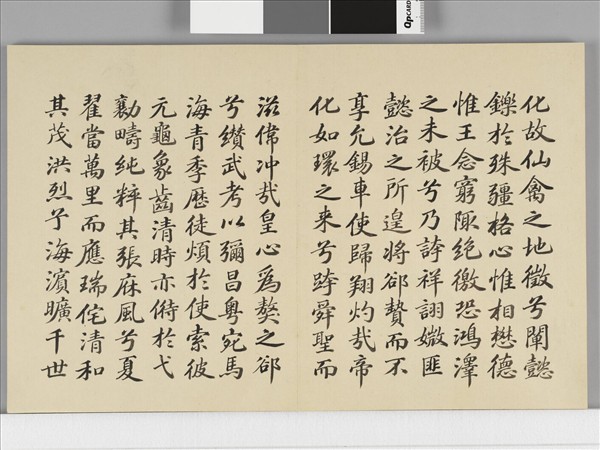 化故仙禽之地徵兮闡懿
鑠於殊疆格心惟相懋德
惟王念窮陬絶徼恐鴻澤
之未被兮乃誇祥詡媺匪
懿治之所遑將郤贄而不
享允錫車使歸翔灼哉帝
化如環之来兮跨舜聖而
滋偉冲哉皇心爲獒之郤
兮纘武考以彌昌粤宛馬
海青季歷徒煩於使索彼
元龜象齒清時亦於弋
疇純粹其張庥風兮夏
翟當萬里而應瑞侘清和
其茂洪烈于海濱曠千世
QPCARD